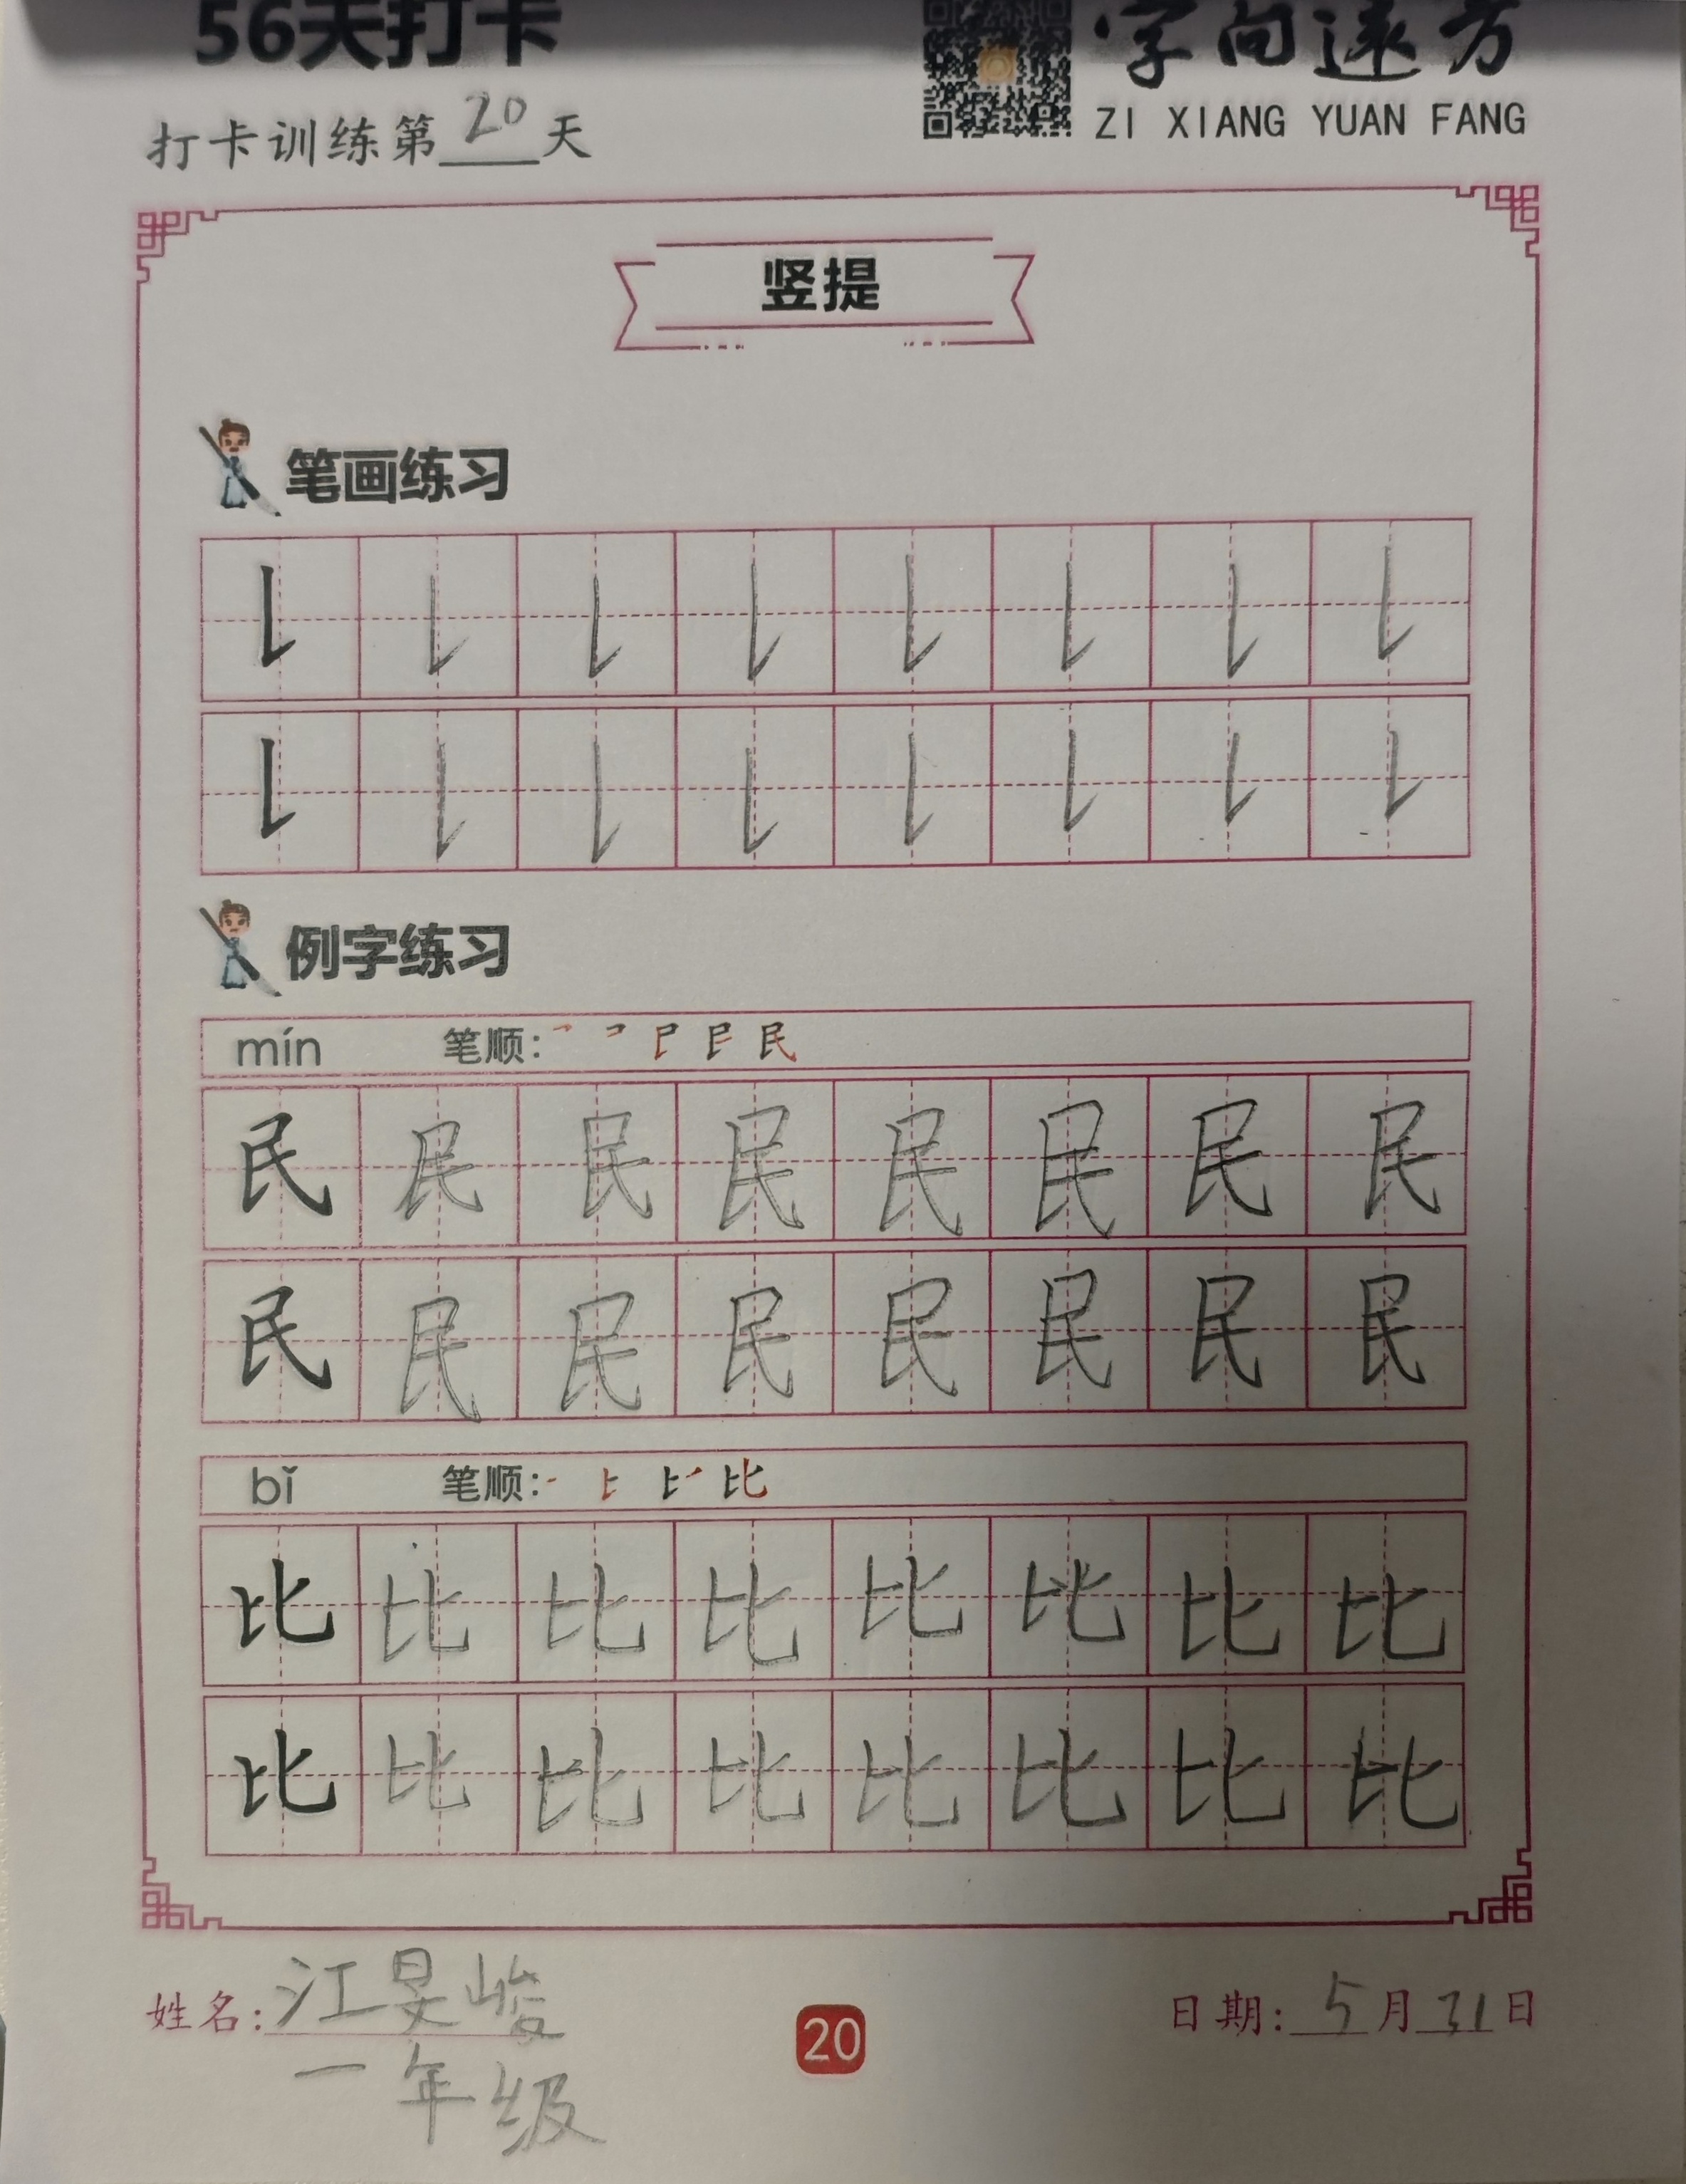 56天打卡
字向远方
ZI XIANG YUAN FANG
打卡训练第20天
竖提
笔画练习
例字练习
mín 笔顺:
民 民 民 民 民 民 民 民
民 民 民 民 民 民 民 民
bǐ 笔顺:
比 比 比 比 比 比 比 比
比 比 比 比 比 比 比 比
姓名:江旻峻
一年级
20
日期:5月31日